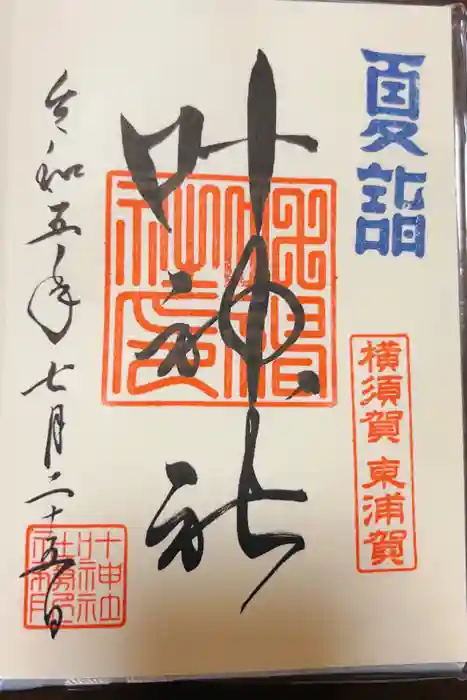 夏詣
横須賀 東浦賀
叶神社
令和五年七月二十五日
叶神社
社務所印